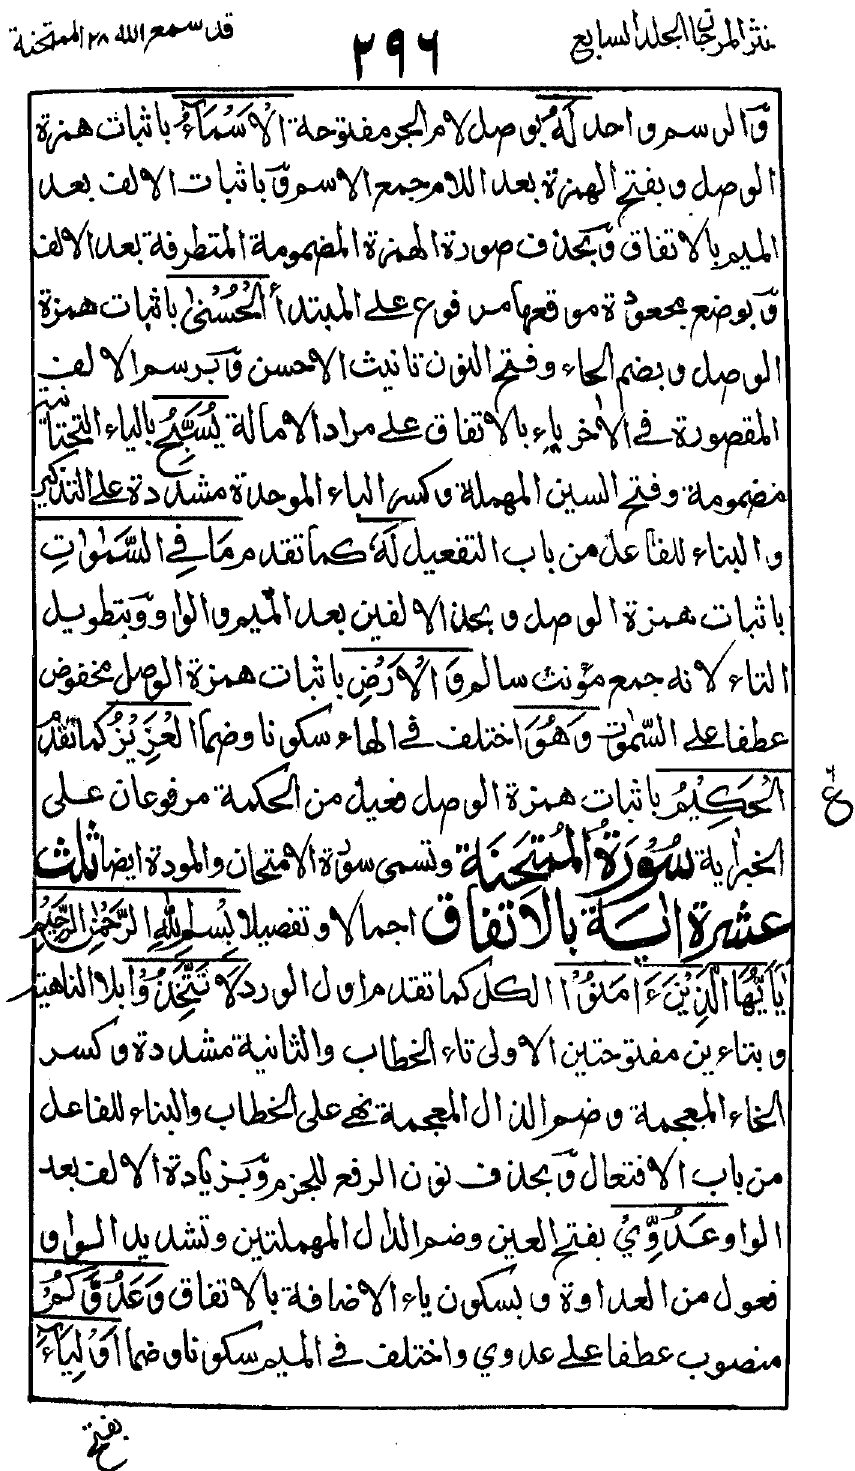 نثر المرجان الجلد السابع
٢٩٦
قد سمع الله ٢٨ الممتحنة
وّالرسم واحد لَهُ بوصل لام الجر مفتوحة الْاَسْمَآءُ باثبات همزة
الوصل وبفتح الهمزة بعد اللام جمع الاسم وّباثبات الالف بعد
الميم بالاتفاق وّبحذف صورة الهمزة المضمومة المتطرفة بعد الالف
وّبوضع مجعودة موقعها مرفوع على المبتدأ الْحُسْنٰى باثبات همزة
الوصل وبضم الحاء وفتح النون تانيث الاحسن وّبرسم الالف
المقصورة في الاخر ياء بالاتفاق على مراد الامالة يُسَبِّحُ بالياء التحتانية
مضمومة وفتح السين المهملة وكسر الباء الموحدة مشددة على التذكير
والبناء للفاعل من باب التفعيل لَهٗ كما تقدم مَا فِي السَّمٰوٰتِ
باثبات همزة الوصل وبحذف الالفين بعد الميم والواو وّبتطويل
التاء لانه جمع مؤنث سالم وَالْاَرْضِ باثبات همزة الوصل مخفوض
عطفا على السمٰوٰت وَهُوَ اختلف في الهاء سكونا وضما الْعَزِيْزُ كما تقدم
الْحَكِيْمُ باثبات همزة الوصل فعيل من الحكمة مرفوعان على
ع
الخبراية سُوْرَةُ الْمُمْتَحِنَة وتسمى سورة الامتحان والمودة ايضا ثلث
عشرة اٰية بالاتفاق اجمالا وتفصيلا بِسْمِ اللّٰهِ الرَّحْمٰنِ الرَّحِيْمِ
يٰٓاَيُّهَا الَّذِيْنَ ءَامَنُوْا الكل كما تقدم اول الورد لَا تَتَّخِذُوْا بلا الناهية
وبتاءين مفتوحتين الاولى تاء الخطاب والثانية مشددة وكسر
الخاء المعجمة وضم الذال المعجمة نهي على الخطاب والبناء للفاعل
من باب الافتعال وّبحذف نون الرفع للجزم وّبزيادة الالف بعد
الواو عَدُوِّيْ بفتح العين وضم الدال المهملتين وتشديد الواو
فعول من العداوة وبسكون ياء الاضافة بالاتفاق وَعَدُوَّكُمْ
منصوب عطفا على عدوي واختلف في الميم سكونا وضما اَوْلِيَآءَ
بفتح